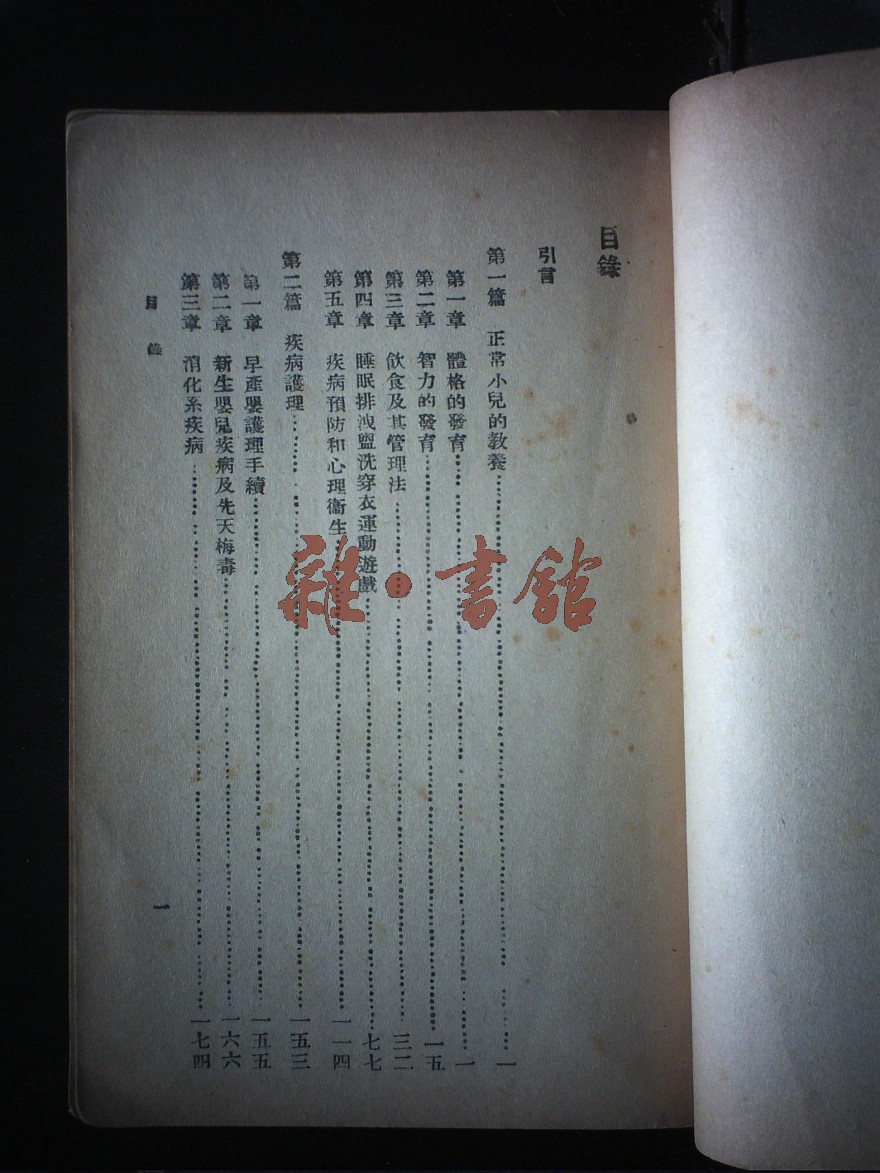 目錄
引言
第一篇 正常小兒的教養……一
第一章 體格的發育……一
第二章 智力的發育……一五
第三章 飲食及其管理法……三二
第四章 睡眠排洩盥洗穿衣運動遊戲……七七
第五章 疾病預防和心理衞生……一一四
第二篇 疾病護理……一五三
第一章 早產嬰護理手續……一五五
第二章 新生嬰兒疾病及先天梅毒……一六六
第三章 消化系疾病……一七四
目錄 一
雜·書館